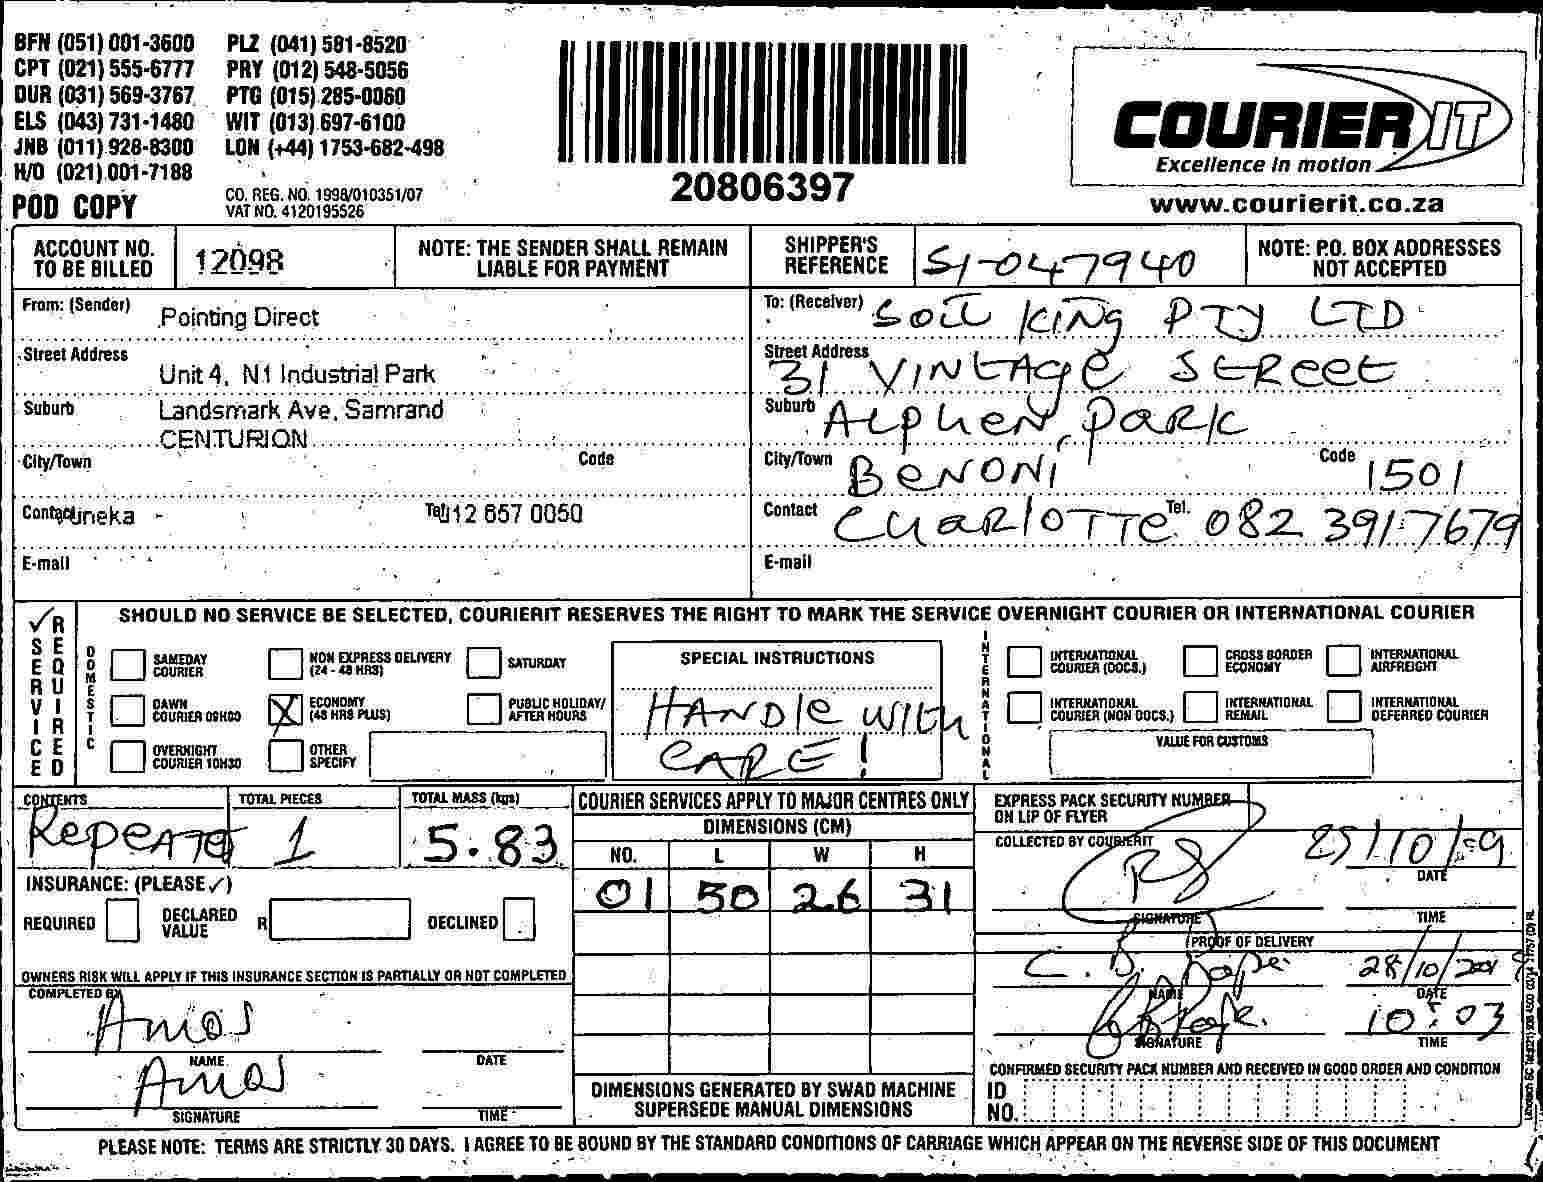 BFN (051) 001-3600 PLZ (041) 581-8520
CPT (021) 555-6777 PRY (012) 548-5056
DUR (031) 569-3767 PTG (015) 285-0060
ELS (043) 731-1480 WIT (013) 697-6100
JNB (011) 928-8300 LON (+44) 1753-682-498
H/O (021) 001-7188
POD COPY
CO. REG. NO. 1998/010351/07
VAT NO. 4120195526
20806397
COURIER IT
Excellence in motion
www.courierit.co.za
ACCOUNT NO. TO BE BILLED 12098
NOTE: THE SENDER SHALL REMAIN LIABLE FOR PAYMENT
SHIPPER'S REFERENCE S1-047940
NOTE: P.O. BOX ADDRESSES NOT ACCEPTED
From: (Sender) Pointing Direct
Street Address Unit 4, N1 Industrial Park
Suburb Landsmark Ave, Samrand
CENTURION
City/Town Code
Contact Yuneka Tel. 012 657 0050
E-mail
To: (Receiver) Soil King PTY LTD
Street Address 31 Vintage Street
Suburb Alphen Park
City/Town Benoni Code 1501
Contact Charlotte Tel. 082 3917679
E-mail
✓ SERVICE REQUIRED
SHOULD NO SERVICE BE SELECTED, COURIERIT RESERVES THE RIGHT TO MARK THE SERVICE OVERNIGHT COURIER OR INTERNATIONAL COURIER
DOMESTIC
SAMEDAY COURIER
NON EXPRESS DELIVERY (24 - 48 HRS)
SATURDAY
DAWN COURIER 09H00
X ECONOMY (48 HRS PLUS)
PUBLIC HOLIDAY/ AFTER HOURS
OVERNIGHT COURIER 10H30
OTHER SPECIFY
SPECIAL INSTRUCTIONS
Handle with
care!
INTERNATIONAL
INTERNATIONAL COURIER (DOCS.)
CROSS BORDER ECONOMY
INTERNATIONAL AIRFREIGHT
INTERNATIONAL COURIER (NON DOCS.)
INTERNATIONAL REMAIL
INTERNATIONAL DEFERRED COURIER
VALUE FOR CUSTOMS
CONTENTS
TOTAL PIECES 1
TOTAL MASS (kgs) 5.83
INSURANCE: (PLEASE ✓)
REQUIRED DECLARED VALUE R DECLINED
OWNERS RISK WILL APPLY IF THIS INSURANCE SECTION IS PARTIALLY OR NOT COMPLETED
COMPLETED BY
Amos
NAME DATE
Amos
SIGNATURE TIME
COURIER SERVICES APPLY TO MAJOR CENTRES ONLY
DIMENSIONS (CM)
NO. L W H
01 50 26 31
DIMENSIONS GENERATED BY SWAD MACHINE SUPERSEDE MANUAL DIMENSIONS
EXPRESS PACK SECURITY NUMBER ON LIP OF FLYER
COLLECTED BY COURIERIT
DATE
SIGNATURE TIME
PROOF OF DELIVERY
28/10/2019
NAME DATE
10:03
SIGNATURE TIME
CONFIRMED SECURITY PACK NUMBER AND RECEIVED IN GOOD ORDER AND CONDITION
ID NO.
PLEASE NOTE: TERMS ARE STRICTLY 30 DAYS. I AGREE TO BE BOUND BY THE STANDARD CONDITIONS OF CARRIAGE WHICH APPEAR ON THE REVERSE SIDE OF THIS DOCUMENT